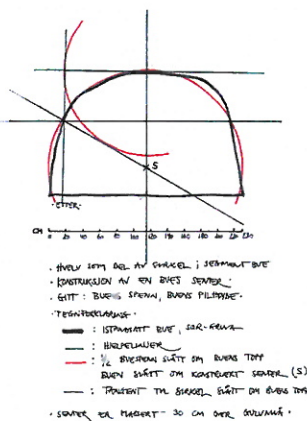 S
· ETTER ·
CM
0 20 40 60 80 100 120 140 160 180 200 220
· HVELV SOM DEL AV SIRKEL i SEGMENT BUE
· KONSTRUKSJON AV EN BUES SENTER ·
· GITT : BUENS SPENN, BUENS PILHØYDE ·
· TEGNFORKLARING ·
: ISTANDSATT BUE,
: HJELPELINJER
: 1/2 BUESPENN SLÅTT OM BUENS TOPP
BUEN SLÅTT OM KONSTRUERT SENTER (S)
: TANGENT TIL SIRKEL SLÅTT OM BUENS TOPP
· SENTER ER MARKERT - 30 CM OVER GULVNIVÅ ·